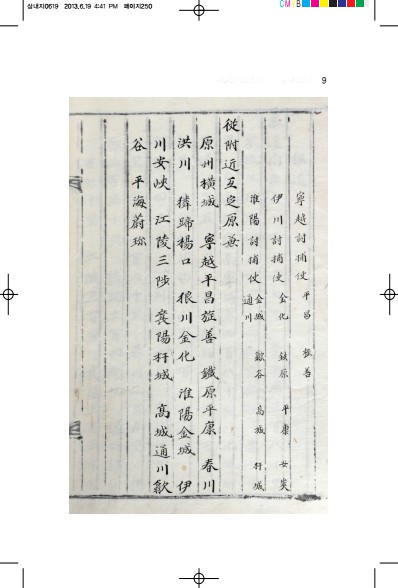 삼내지0619 2013.6.19 4:41 PM 페이지250
CMYB
9
寧越討捕使 平昌 旌善
伊川討捕使 金化 鐵原 平康 安峽
淮陽討捕使 金城 通川 歙谷 高城 杆城
從附近互定原兼
原州橫城 寧越平昌旌善 鐵原平康 春川
洪川 獜蹄楊口 狼川金化 淮陽金城 伊
川安峽 江陵三陟 襄陽杆城 高城通川歙
谷 平海蔚珎